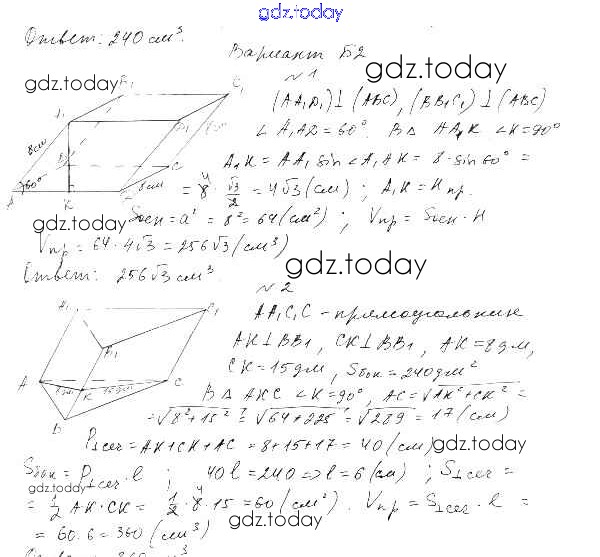 gdz.today
Ответ: 240 см³.
Вариант Б2
gdz.today
gdz.today
№1
(AA₁D₁) ⊥ (ABC), (BB₁C₁) ⊥ (ABC)
∠A₁AD = 60°. В △ AA₁K ∠K = 90°
A₁K = AA₁ sin ∠A₁AK = 8 · sin 60° =
= 8 · √3/2 = 4√3 (см) ; A₁K = H пр.
A₁ B₁ C₁ D₁ 8см 60° B C A K 8см
gdz.today
Sосн = a² = 8² = 64 (см²) ; Vпр = Sосн · H
Vпр = 64 · 4√3 = 256√3 (см³)
Ответ: 256√3 см³.
gdz.today
№2
AA₁C₁C – прямоугольник
AK ⊥ BB₁, CK ⊥ BB₁, AK = 8дм,
CK = 15дм, Sбок = 240дм²
A₁ C₁ B₁ A K C B 8дм 15дм
В △ AKC ∠K = 90°, AC = √AK² + CK² =
= √8² + 15² = √64 + 225 = √289 = 17 (см)
P⊥сеч = AK + CK + AC = 8 + 15 + 17 = 40 (см)
gdz.today
Sбок = P⊥сеч · l ; 40l = 240 ⇒ l = 6 (см) ; S⊥сеч =
gdz.today
= 1/2 AK · CK = 1/2 · 8 · 15 = 60 (см²). Vпр = S⊥сеч · l =
gdz.today
= 60 · 6 = 360 (см³)
Ответ: 360 см³